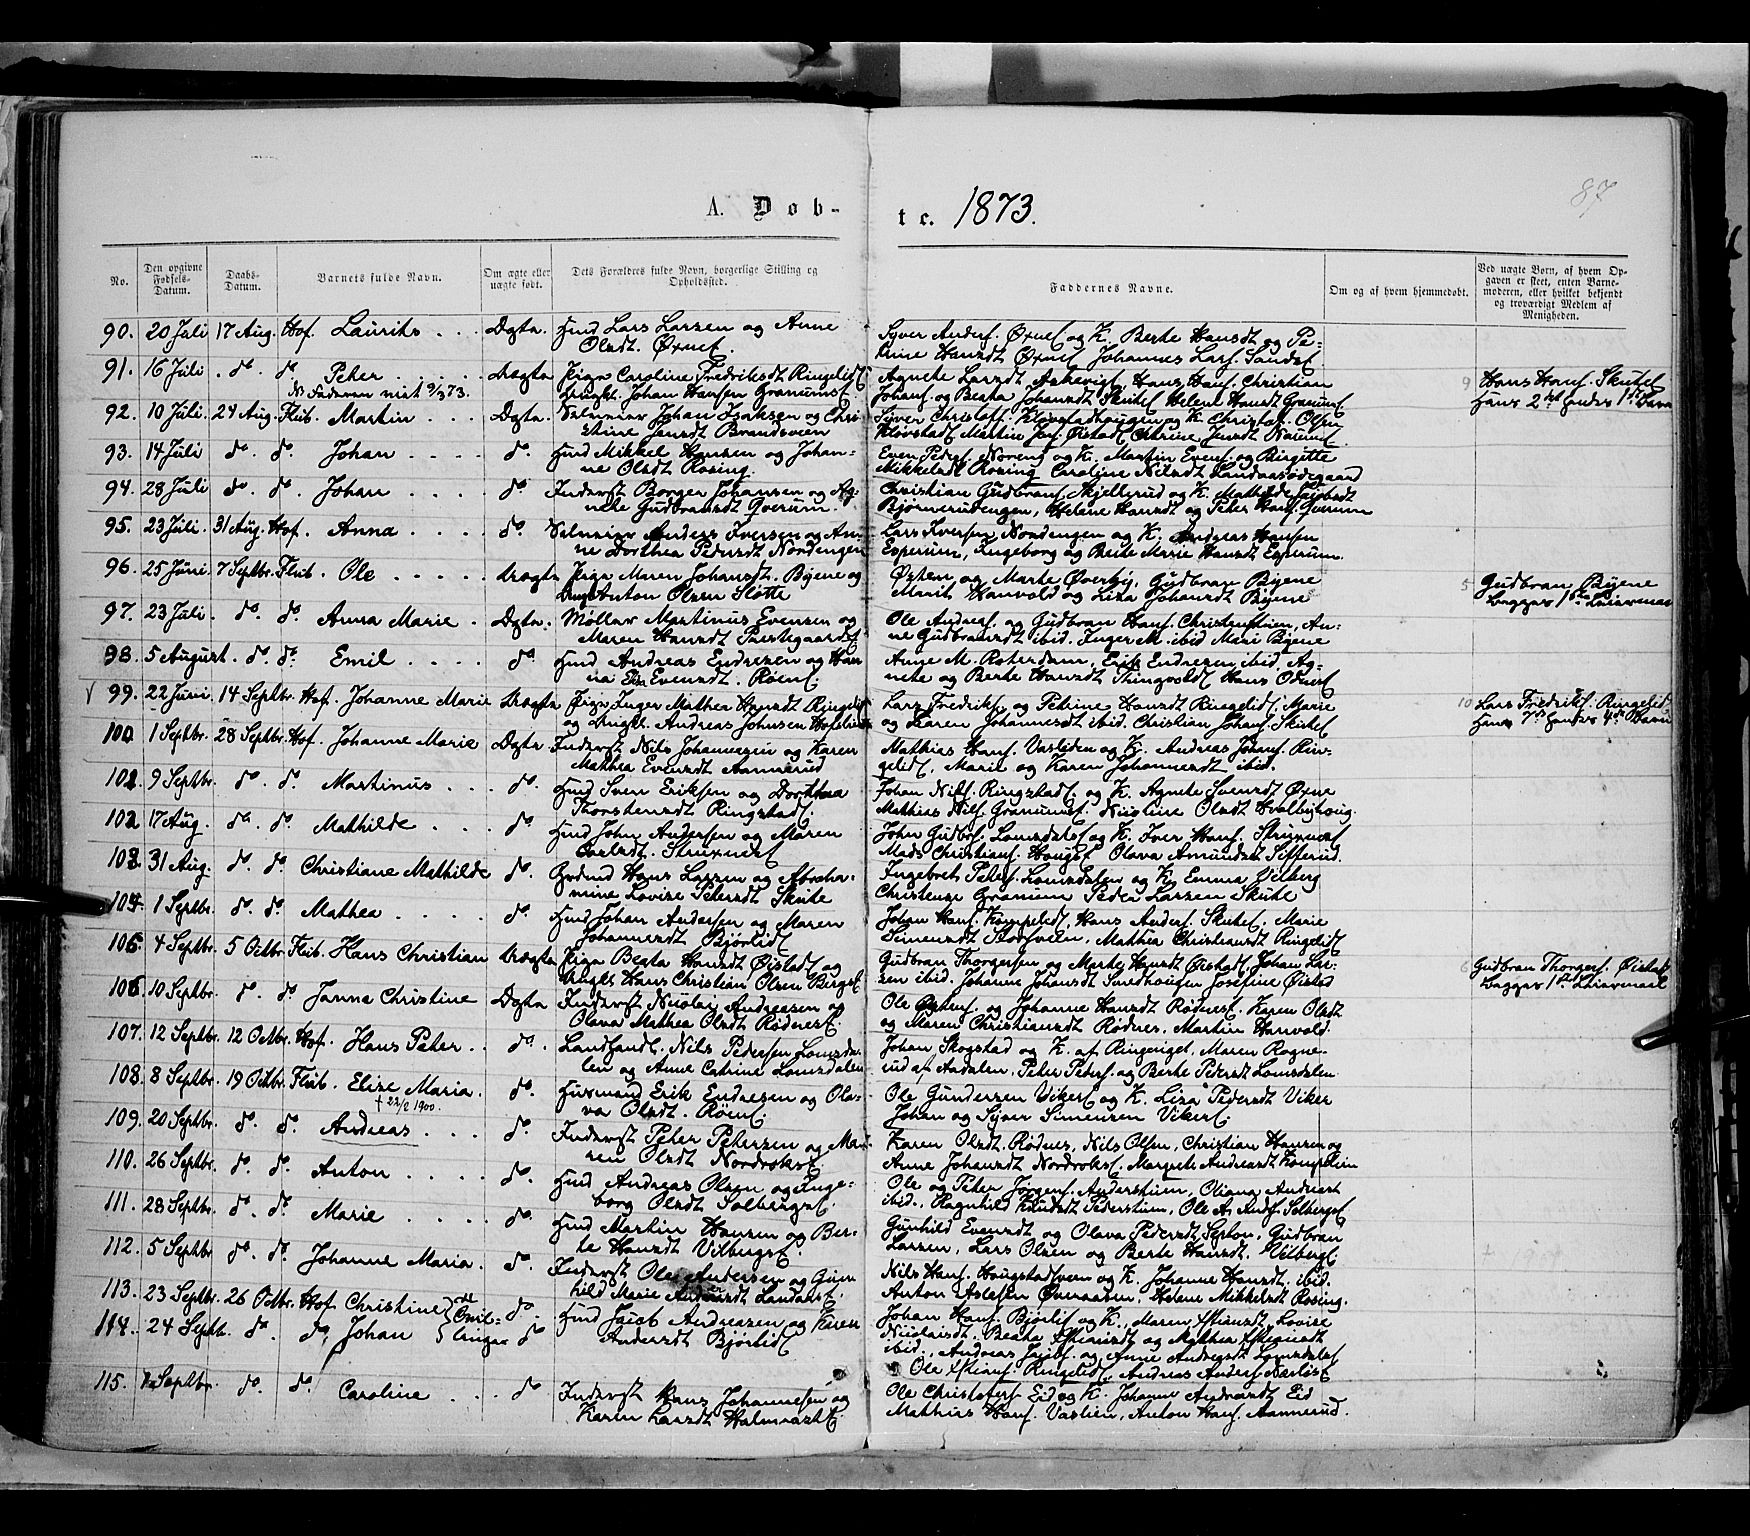 87
A. Døb-
te. 1873.
No.
Den opgivne Fødsels-Datum.
Daabs-Datum.
Barnets fulde Navn.
Om ægte eller uægte født.
Dets Forældres fulde Navn, borgerlige Stilling og Opholdssted.
Faddernes Navne.
Om og af hvem hjemmedøbt.
Ved uægte Børn, af hvem Opgaven er skeet, enten Barnemoderen, eller hvilket bekjendt og troværdigt Medlem af Menigheden.
90. 20 Juli 17 Aug. Hof. Laurits Ægta. Hmd Lars Larsen og Anne
Olsdt. Øxnes.
Syver Anders. Øxnes og K. Berte Hansdt og Pe-
trine Hansdt Øxnes Johannes Lars. Sandes
91. 16 Juli do. do Peter Uægta Pige Caroline Fredriksdt Ringelids
Ungk. Johan Hansen Granums
Agnete Larsdt, Hans Hans. Christian
Johans. og Beata Johansdt Skutes Helene Hansdt Granums
9 Hans Hans. Skutes
Hans 2det hendes 1ste Barn
92. 10 Juli. 24 Aug. Flub. Martin Ægta. Selveier Johan Isaksen og Chri-
stine Jansdt Brandsveen
Syver Christoff. Klovstadhaugen og K. Christof. Olsen
Klovstad, Martin Jens. Øistad, Cathrine Jensdt
93. 14 Juli do. do. Johan do. Hmd Mikkel Hansen og Johan-
ne Olsdt Rosing.
Even Peders. og K. Martin Evens. og Birgitte
Mikkelsdt Rosing Caroline Nilsdt Landaasødegaard
94. 28 Juli do. do. Johan do Inderst Borger Johansen og Ag-
nete Gudbransdt Qverum.
Christian Gudbrans. Skjellerud og K. Mathilde Jacobsdt
Bjørnerudengen, Helene Hansdt og Peter Hans. Qverum
95. 23 Juli. 31 Aug. Hof. Anna do. Selveier Anders Iversen og An-
ne Dorthea Pedersdt Nordengen
Lars Iversen Nordengen og K. Andreas Hansen
Esperum, Ingeborg og Berte Marie Hansdt Esperum.
96. 25 Juni. 7 Septbr. Flub. Ole Uægta Pige Maren Johansdt. Byene og
Ungk Anton Olsen Slotte
Østen og Marte Øverby, Gudbran Byene
Marit Hanvold og Lisa Johansdt Byene
5 Gudbran Byene
Begges 1ste Leiermaal
97. 23 Juli. do. do. Anna Marie Ægta. Møller Martinus Evensen og
Maren Hansdt
Ole Anders. og Gudbran Hans. Christenstuen, An-
ne Gudbransdt ibid. Inger M. ibid Mari Byene
98. 5 August. do. do. Emil do. Hmd Andreas Endresen og Han-
na Elisa Evensdt. Røens.
Anne M. Roterdam, Erik Endresen ibid. Ag-
nete og Berte Hansdt Thingvolds Hans
√ 99. 22 Juni. 14 Septbr. Hof. Johanne Marie Uægta Pige Inger Mathea Hansdt Ringelids
og Ungk. Andreas Johnsen
Lars Fredriks. og Petrine Hansdt Ringelids. Marie
og Karen Johannesdt ibid. Christian Johans. Skutes
10 Lars Fredriks. Ringelids
Hans 7de hendes 4de Barn
100 1 Septbr. 28 Septbr. Hof. Johanne Marie Ægta Inderst Nils Johannesen og Karen
Mathea Evensdt Aannerud
Mathias Hans. Vasliden og K. Andreas Johans. Rin-
gelids, Marie og Karen Johannesdt ibid.
101. 9 Septbr. do. do. Martinus do. Hmd Sven Eriksen og Dorthea
Thorstensdt Ringstads.
Johan Nils. Ringstads og K. Agnete Svensdt Øxne
Mathias Nils. Granums. Nicoline Olsdt Hvalbyhoug.
102 17 Aug. do. do. Mathilde do Hmd John Andersen og Maren
Struxnes
John Gudbrs. Lomsdals og K. Iver Hans. Struxnes
Mads Christians. Houges Olava Amundsdt Sifferud.
103 31 Aug. do do. Christiane Mathilde do. Hans Larsen og Abraha-
mine Lovise Petersdt Skute
Ingebret Peters. Lomsdalen og K. Emma
Christense Granum Peder Larsen Skute
104. 1 Septbr. do. do. Mathea do Hmd Johan Andersen og Maren
Johannesdt Bjørlids
Johan Hans. Kampelids, Hans Anders. Skutes. Marie
Simensdt, Mathea Christiansdt Ringelids
105 4 Septbr. 5 Octbr. Flub. Hans Christian Uægta Pige Beata Hansdt Øistads og
Ungk. Hans Christian Olsen Berges
Gudbran Thorgersen og Marte Hansdt Øistads, Johan Lar-
sen ibid. Johanne Johansdt Josefine Øistad
6 Gudbran Thorgers. Øistads
Begges 1ste Leiermaal
106 10 Septbr. do. do Janna Christine Ægta Inderst Nicolai Andreasen og
Olava Mathea Olsdt Rødnes.
Ole Østens. og Johanne Hansdt Rødnes. Karen Olsdt
og Maren Christiansdt Rødnes, Martin Hanvold.
107. 12 Septbr. 12 Octbr. Hof. Hans Peter do. Landhandl. Nils Pedersen Lomsda-
len og Anne Catrine Lomsdalen
Johan Skogstad og K. af Ringerige, Maren Rogne-
rud af Aadalen, Peter Peders. og Berte Pedersdt Lomsdalen
108. 8 Septbr. 19 Octbr. Flub. Elise Maria.
† 22/2 1900.
do. Husmand Erik Endresen og Ola-
va Olsdt. Røens.
Ole Gundersen Vikers og K. Lisa Pedersdt Viker
Johan og Syver Simensen Vikers.
109. 20 Septbr. do. do. Andreas do. Inderst Peter Petersen og Ma-
ren Olsdt Nordroks.
Karen Olsdt. Rødnes, Nils Olsen, Christian Hansen og
Anne Johansdt Nordroks. Margrete Andreasdt
110. 26 Septbr. do. do. Anton do. Hmd Andreas Olsen og Inge-
borg Olsdt Solberges.
Ole og Peter Jørgens. Anderstuen, Oliana Andreasdt
ibid. Ragnhild Knudsdt Pederstuen, Ole A. Solberges
111. 28 Septbr. do do. Marie do. Hmd Martin Hansen og Ber-
te Hansdt Vilbergs.
Gunhild Evensdt og Olava Pedersdt, Gudbran
Larsen, Lars Olsen og Berte Hansdt. Vilbergs.
112. 5 Septbr do. do. Johanne Maria. do. Inderst Ole Andersen og Gun-
hild Marie Landaas.
Nils Hans. Hougstadsveen og K. Johanne Hansdt. ibid.
Anton Øveraasen, Helene Mikkelsdt Rosing.
113. 23 Septbr. 26 Octbr. Hof. Christine } do. Hmd Jacob Andreasen og Karen
Andersdt Bjørlids
Johan Hans. Bjørlis og K., Maren, Lovise
114. 24 Septb. do. do. Johan } Tvil-
linger do
Nicolaisdt. Beate og Mathea
ibid., Andreas Jacobs. og Anne Andersdt Lomsdals
Ole Ringelids, Andreas Anders.
115. Septbr. do. do. Caroline do Inderst Hans Johannesen og
Karen Larsdt
Ole Christofers Eid og K. Johanne Andreasdt Eid
Mathias Hans. Vaslien, Anton Hans. Aannerud.